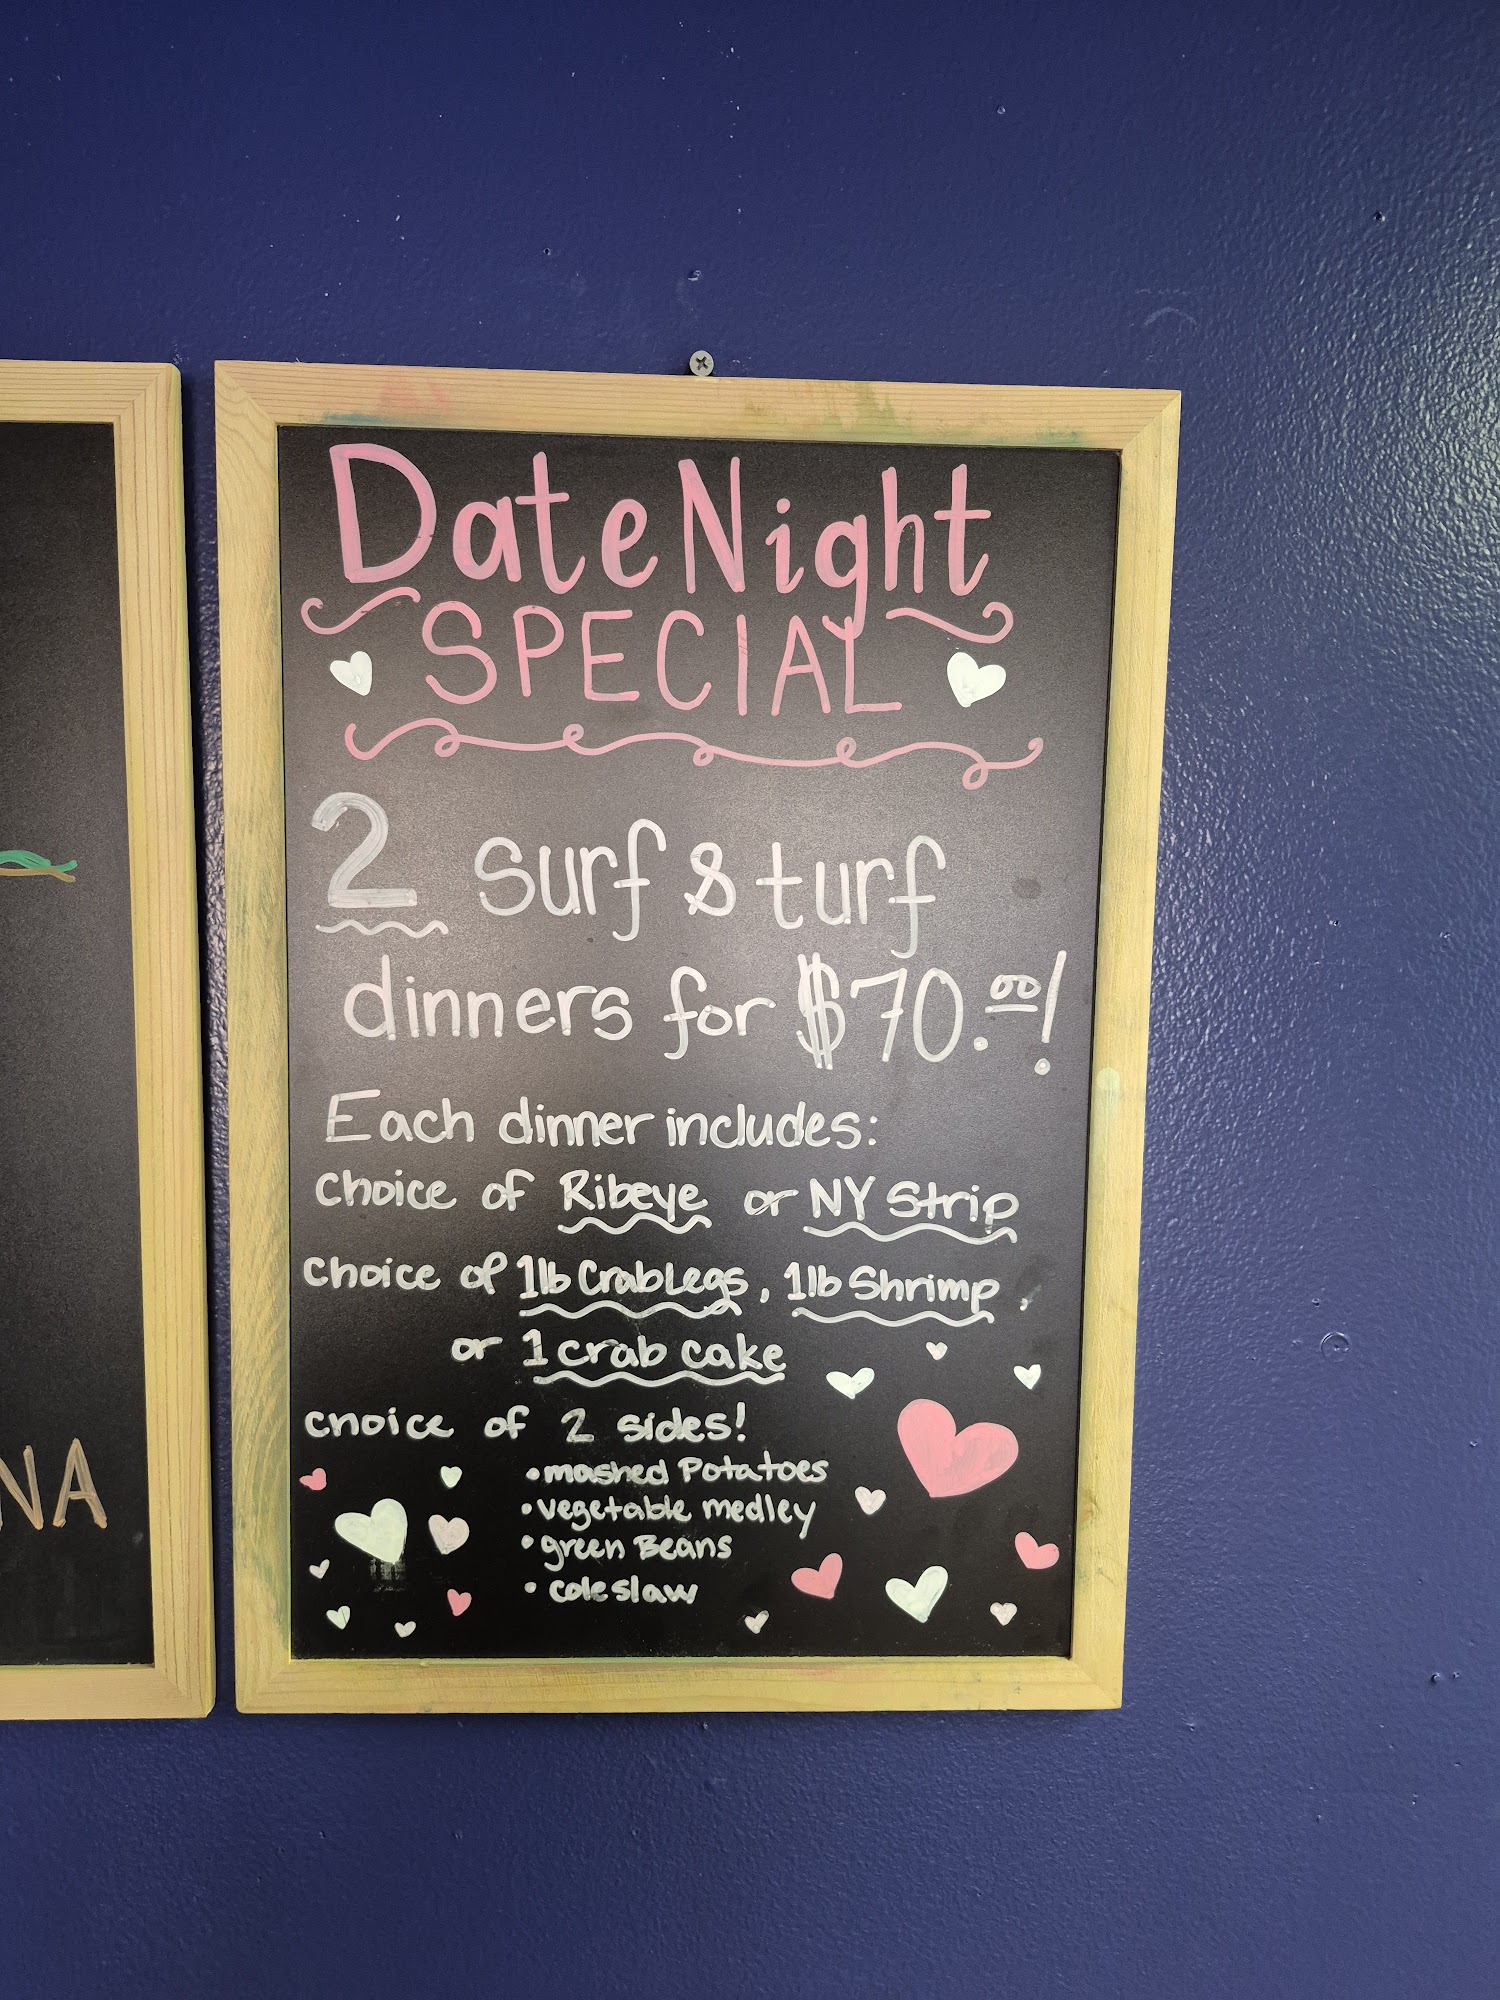 Date Night
SPECIAL
2 surf & turf
dinners for $70.00!
Each dinner includes:
choice of Ribeye or NY Strip
choice of 1lb Crab Legs, 1lb Shrimp,
or 1 crab cake
choice of 2 sides!
• mashed Potatoes
• vegetable medley
• green Beans
• coleslaw
NA